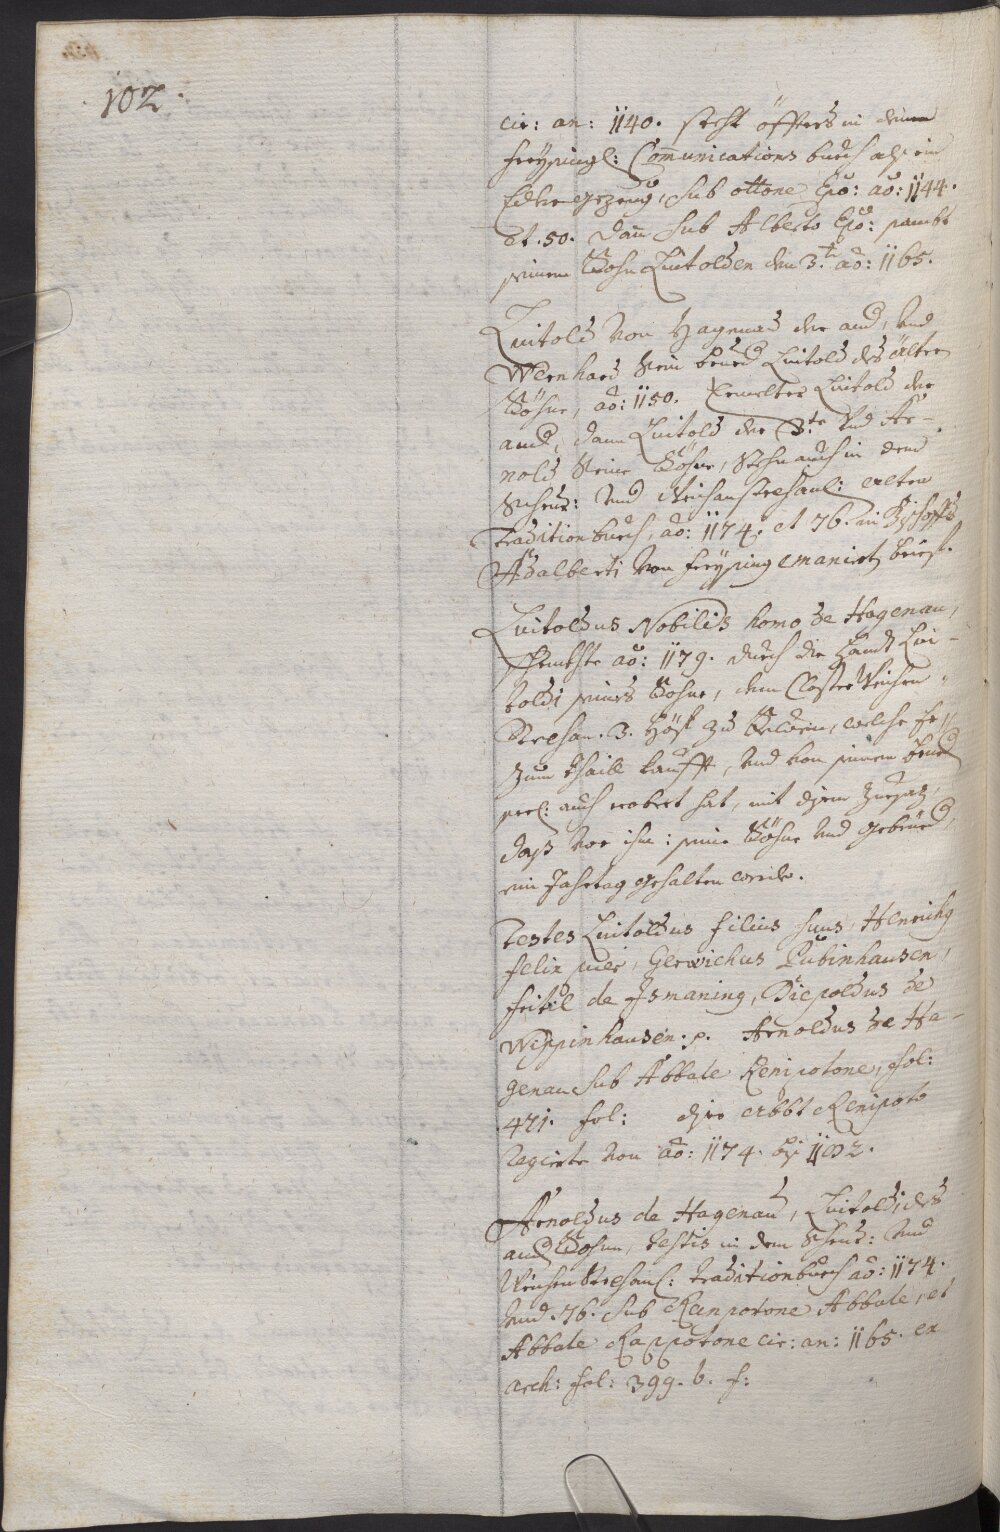 102.
cir: an: 1140. steht öffters in denen
freysingl: Communications buech alß ein
Edler gezeug, sub ottone Epõ: aõ: 1144.
et .50. dan sub Alberto Epõ: sambt
seinem Sohn Luitolden den 3.t aõ: 1165.
Luitold von Hagenau der and, und
Wernhard sein brued Luitold des ältern
Söhne, aõ: 1150. Luitold der
and, dann Luitold der 3.te und Ar-
nold seine Söhne, stehn auch in dem
Scheur: und Weichensteffanl: alten
Tradition buech, aõ: 1174. et 76. in Bischoffs
Adalberti von freysing emanirten brieff.
Luitoldus Nobilis homo de Hagenau,
schenkhte aõ: 1179. durch die handt Lui-
toldi seines Sohns, dem Closter Weichen-
Stephan. 3. Höff zu welche Er
zum thaill kaufft, und von seinem brued
auch erobert hat, mit disem Zuesaz,
dass vor ihn: seine Söhne und gebrüed,
ein Jahrtag gehalten werde.
Testes Luitoldus filius suus, Henrichg
felix puer, Gerwichus Pübinhausen,
de Ismaning, Diepoldus de
Wippinhausen: p. Arnoldus de Ha-
genau sub Abbate Renipotone, fol:
471. fol: diser Abbt Renipoto
regierte von aõ: 1174. bis 1192.
Arnoldus de Hagenau, Luitoldi des
and Sohn, testis in dem Scheur: und
Weichenstephanl: traditionbuech aõ: 1174.
und .76. sub Renpotone Abbate, et
Abbate Rappotone cir: an: 1165. ex
arch: fol: 399. b. f: